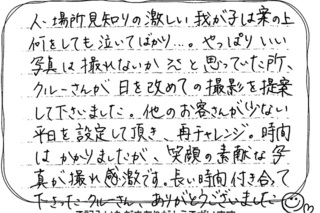 人・場所見知りの激しい我が子は案の上
何をしても泣いてばかり…。やっぱりいい
写真は撮れないかぁと思っていた所、
クルーさんが日を改めての撮影を提案
して下さいました。他のお客さんが少ない
平日を設定して頂き、再チャレンジ。時間
はかかりましたが、笑顔の素敵な写
真が撮れ感激です。長い時間付き合って
下さったクルーさん、ありがとうございました